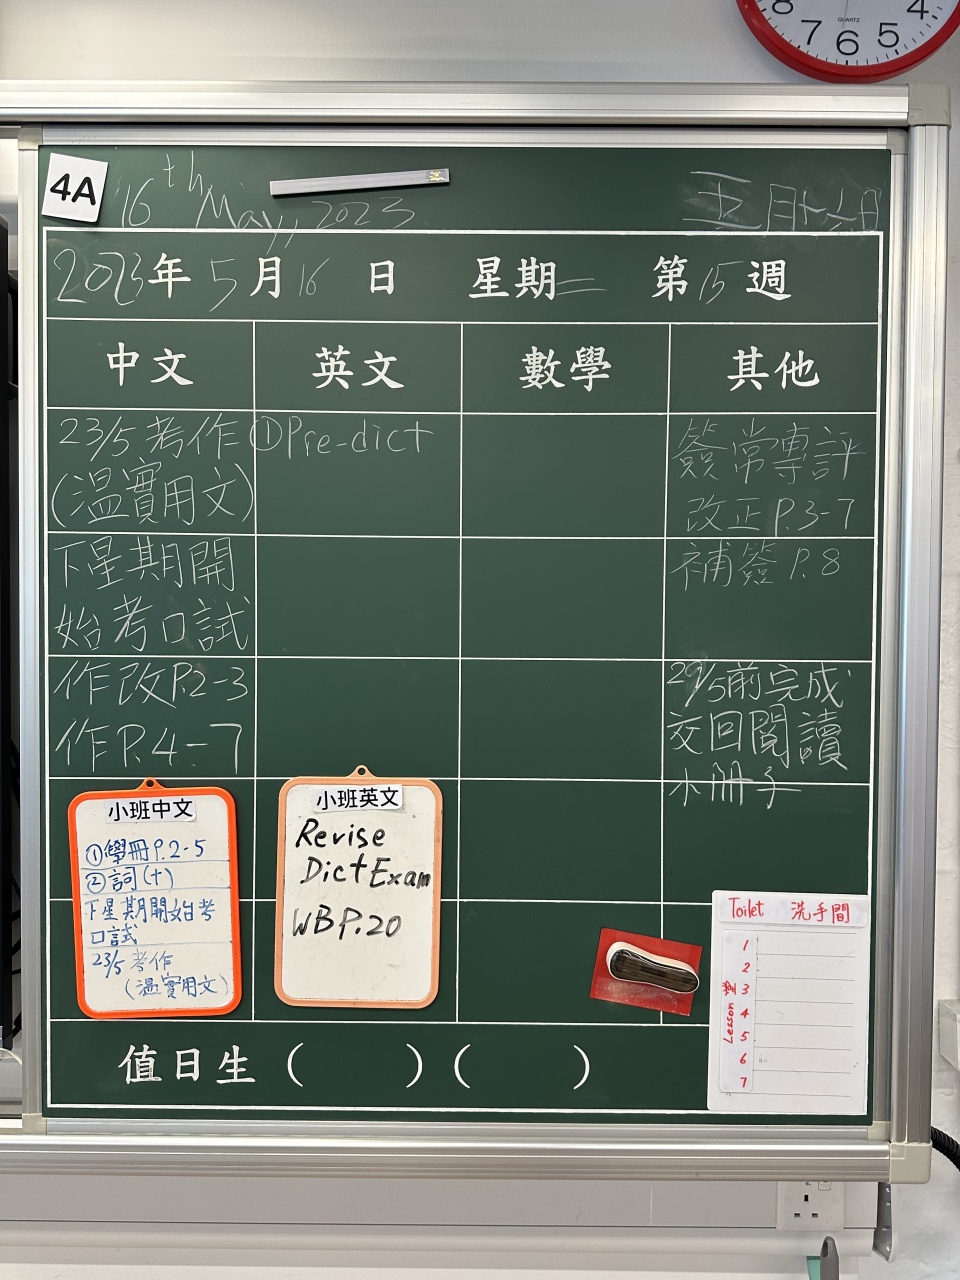 8 7 6 5 4
QUARTZ
4A
16th May, 2023
五月十六日
2023年 5月16日 星期二 第15週
中文
英文
數學
其他
23/5考作
(温實用文)
下星期開
始考口試
作改P.2-3
作P.4-7
①Pre-dict
簽常專評
改正P.3-7
補簽 P.8
29/5前完成
交回閱讀
小冊子
小班中文
①學冊P.2-5
②詞(十)
下星期開始考
口試
23/5考作
(温實用文)
小班英文
Revise
Dict Exam
WB P.20
Toilet 洗手間
Lesson 堂
1
2
3
4
5
6
7
值日生 ( ) ( )